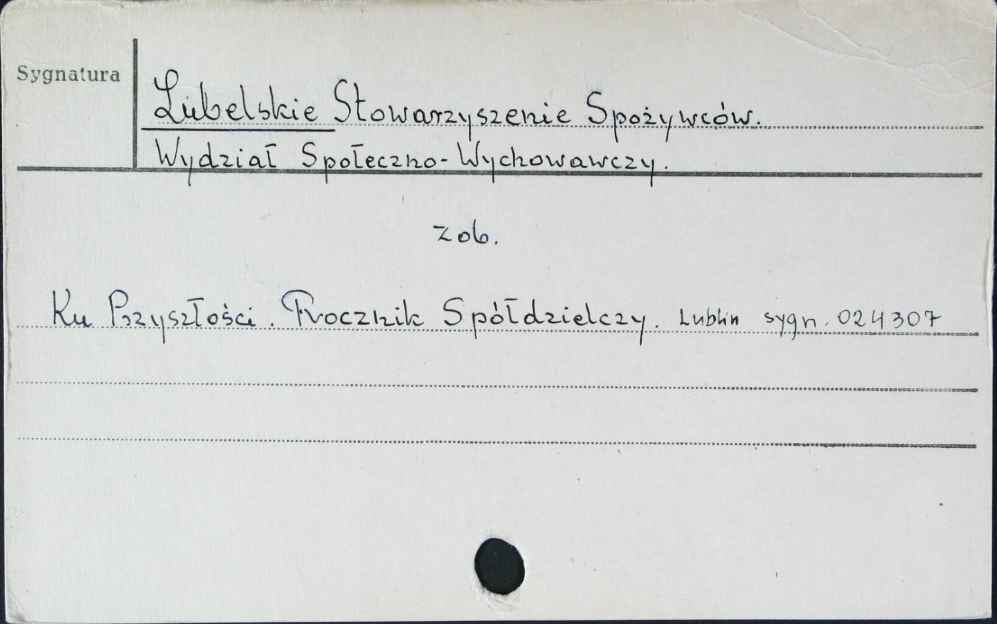 Sygnatura
Lubelskie Stowarzyszenie Spożywców.
Wydział Społeczno-Wychowawczy.
zob.
Ku Przyszłości. Rocznik Spółdzielczy. Lublin sygn. 024307